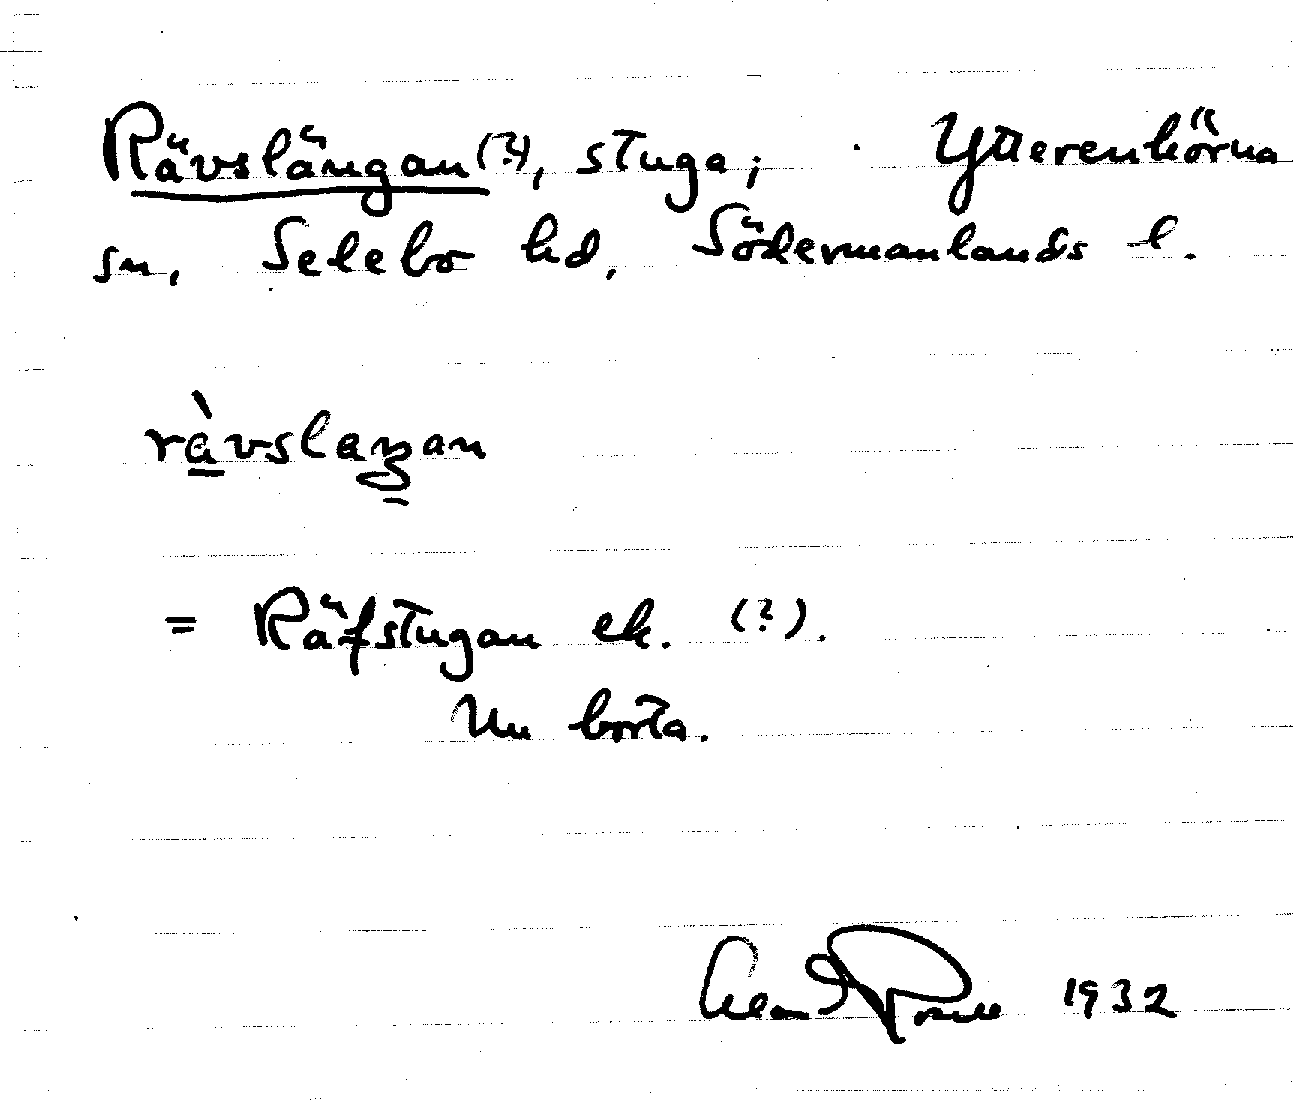 Rävslängan (?), stuga; Ytterenhörna
sn, Selebo hd, Södermanlands l.
ràvslaŋan
= Räfstugan ek. (?).
Nu borta.
1932